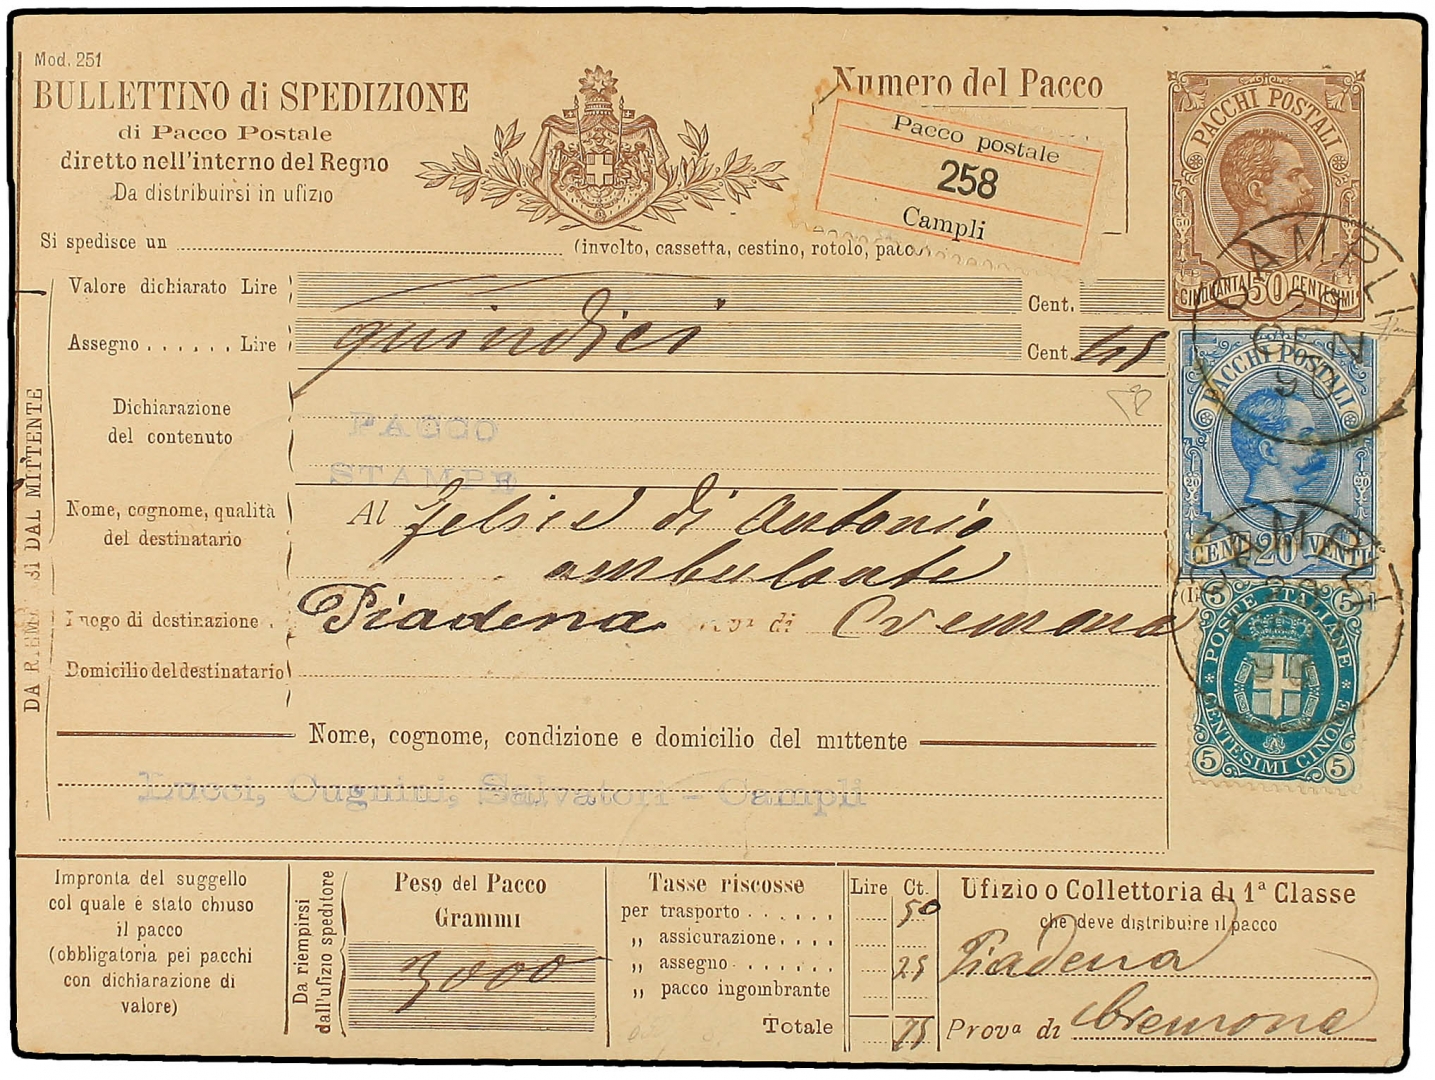 Mod. 251
BULLETTINO di SPEDIZIONE
di Pacco Postale
diretto nell'interno del Regno
Da distribuirsi in ufizio
Numero del Pacco
Pacco postale
258
Campli
PACCHI POSTALI
50
CINQUANTA 50 CENTESIMI
CAMPLI
GEN
90
Si spedisce un (involto, cassetta, cestino, rotolo, pacco
Valore dichiarato Lire Cent.
Assegno Lire quindici Cent. 45
DA RIEMPIRSI DAL MITTENTE
Dichiarazione
del contenuto
PACCO
STAMPE
PACCHI POSTALI
20 20
CENT 20 VENTI
Nome, cognome, qualità
del destinatario
Al Felice di Antonio
ambulante
Luogo di destinazione Piadena di Cremona
Domicilio del destinatario
5 5
POSTE ITALIANE
CENTESIMI CINQUE
5 5
Nome, cognome, condizione e domicilio del mittente
Lucci, Cugnini, Salvatori - Campli
Impronta del suggello
col quale è stato chiuso
il pacco
(obbligatoria pei pacchi
con dichiarazione di
valore)
Da riempirsi
dall'ufizio speditore
Peso del Pacco
Grammi
3000
Tasse riscosse Lire Ct.
per trasporto 50
„ assicurazione
„ assegno 25
„ pacco ingombrante
Totale 75
Ufizio o Collettoria di 1ª Classe
che deve distribuire il pacco
Piadena
Provª di Cremona